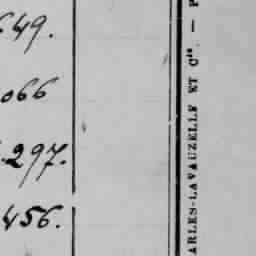 649.
066
297.
456.
ARLES-LAVAUZELLE ET Cie. — P